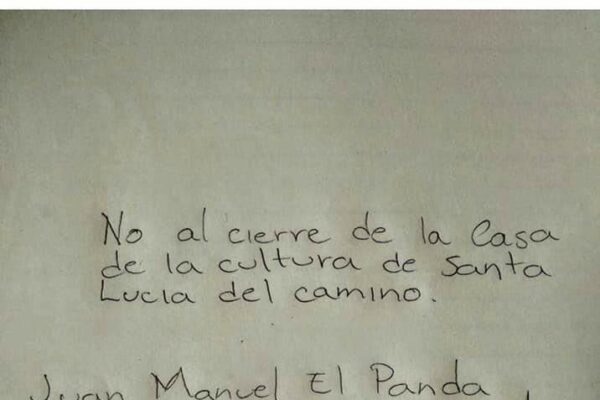 No al cierre de la Casa
de la cultura de Santa
Lucia del camino.
Juan Manuel El Panda